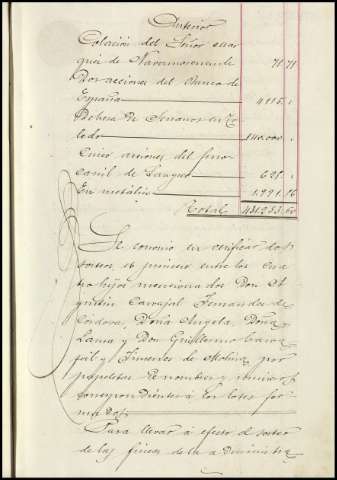 Anterior
Colación del Señor Mar
qués de Navamorcuende 71,71
Dos acciones del Banco de
España 4115,,
Dehesa de Serranos en To
ledo 140.000,,
Cinco acciones del ferro
carril de Langreo 625,,
En metálico 1.991,76
Total
Se convino en verificar dos
sorteos, el primero entre los cua
tro hijos mencionados Don A
gustín Carvajal Fernandez de
Córdova, Doña Angela, Doña
Laura y Don Guillermo Carva
jal y Jimenez de Molina, por
papeletas de nombres y números
correspondientes á los lotes for
mados.
Para llevar á efecto el sorteo
de las fincas de la administra